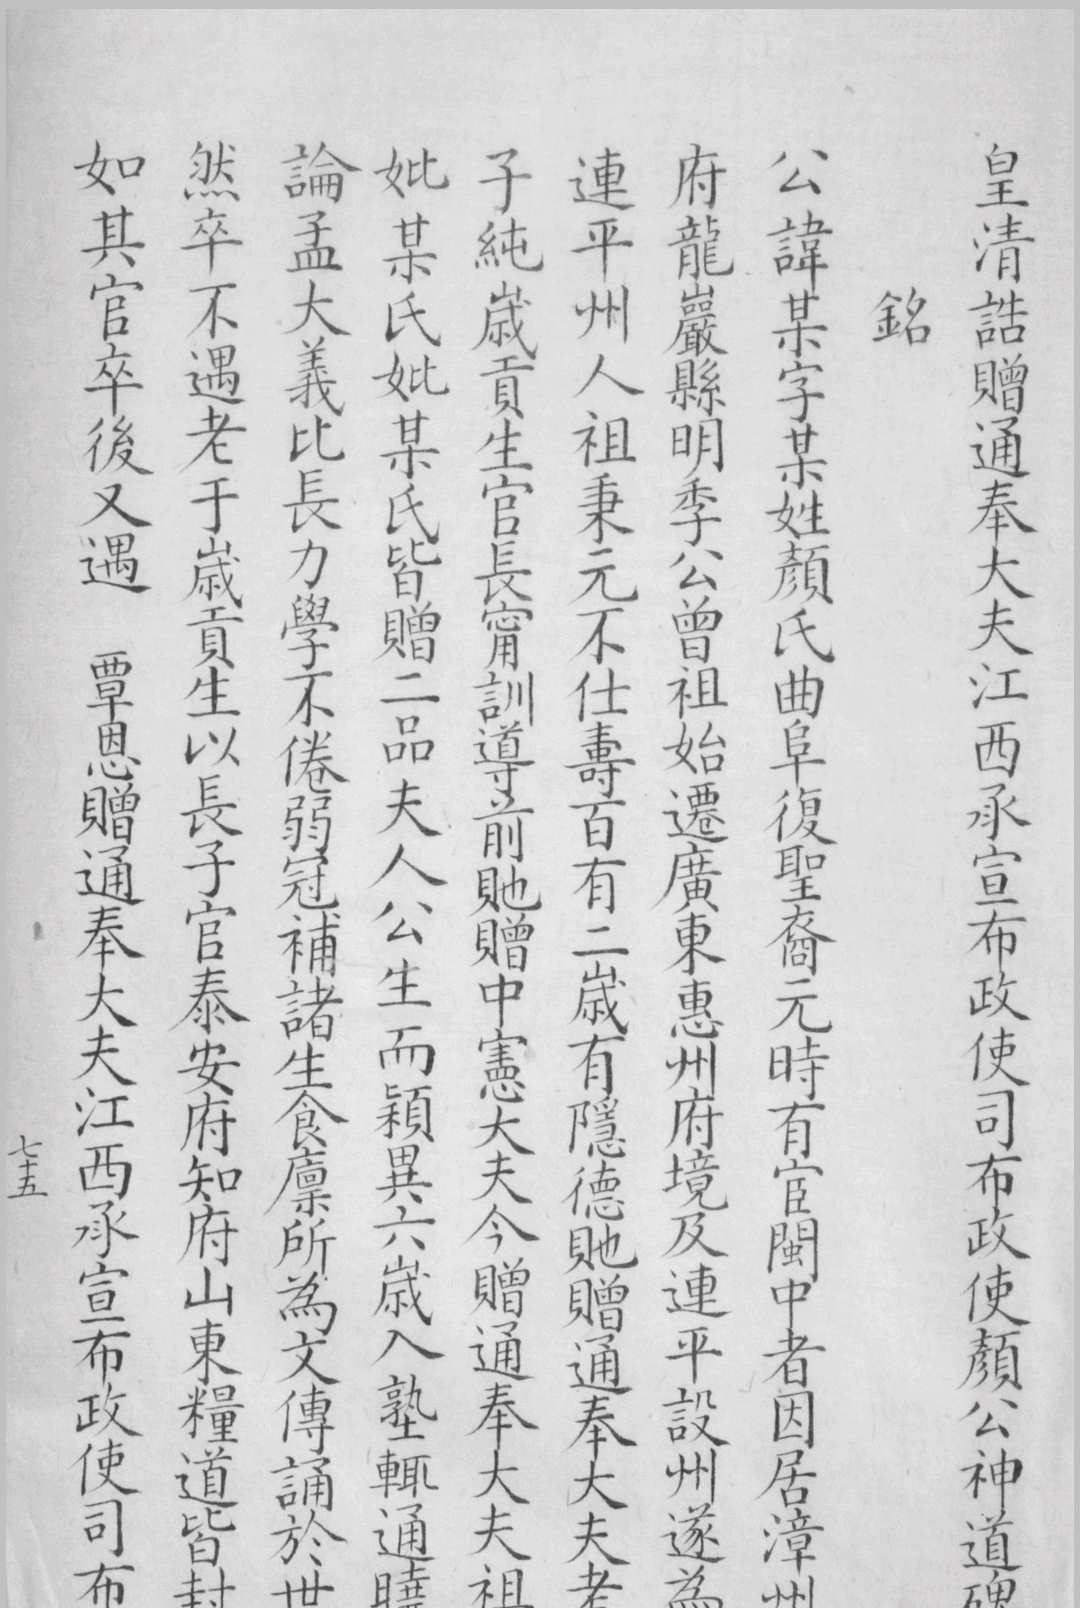 皇清誥贈通奉大夫江西承宣布政使司布政使顏公神道碑
銘
公諱某字某姓顏氏曲阜復聖裔元時有宦閩中者因居漳州
府龍巖縣明季公曾祖始遷廣東惠州府境及連平設州遂為
連平州人祖秉元不仕壽百有二歲有隱德貤贈通奉大夫考
子純歲貢生官長甯訓導前貤贈中憲大夫今贈通奉大夫祖
妣某氏妣某氏皆贈二品夫人公生而穎異六歲入塾輒通曉
論孟大義比長力學不倦弱冠補諸生食廩所為文傳誦於世
然卒不遇老于歲貢生以長子官泰安府知府山東糧道皆封
如其官卒後又遇 覃恩贈通奉大夫江西承宣布政使司布
七十五